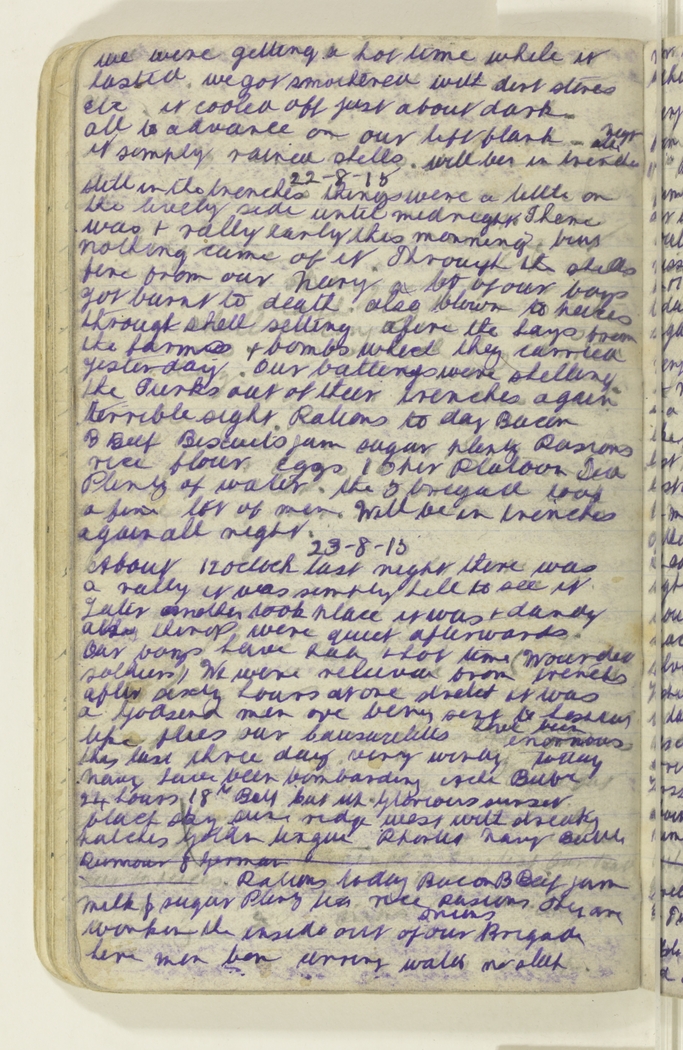 we were getting a hot time while it
lasted. we got smothered with dirt stones
etc. it cooled off just about dark.
all to advance on our left flank. next
it simply rained shells. will be in trenches
22-8-15
still in the trenches things were a little on
the lively side until midnight. There
was + rally early this morning, but
nothing came of it. Through the shells
fire from our Navy a lot of our boys
got burnt to death. also blown to peices
through shell setting afire the bags from
the farms + bombs which they carried
yesterday. Our batterys were shelling
the Turks out of their trenches again
terrible sight. Rations to day Bacon
B Beef Biscuits jam sugar plenty Rasions
rice flour eggs 15 per Platoon Tea
Plenty of water. the 5 brigade
a fine lot of men. Will be in trenches
again all night.
23-8-15
About 12 oclock last night there was
a rally it was simply hell to see it
Later another took place it was + dandy
things were quiet afterwards.
Our boys have had + hot time (Wounded
soldiers) We were releived from trenches
after sixty hours at one stretch it was
a Godsend men are being sent to
like flies our casuarelties have been enormous
this last three day very windy today
Navy have been bombarding
24 hours 18th Batt cut up Glorious sunset
black sky ridge west with streaky
patches golden Navy
Rumour of German
Rations today Bacon B Beef jam
milk & sugar Plenty tea rice rasions They are
onions
workin the inside out of our Brigade
here men been water no sleep.